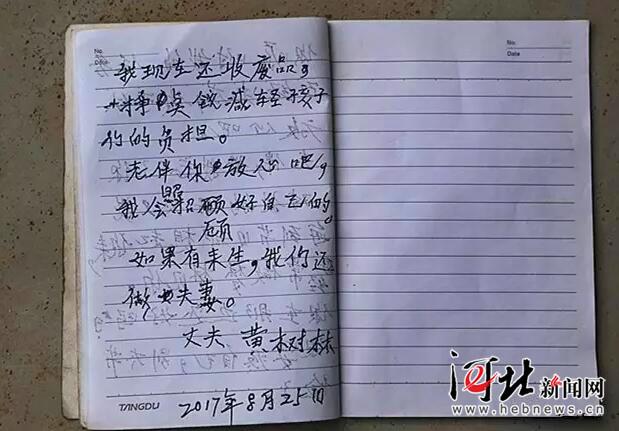 No.
Date
我现在还收废品，
挣点钱减轻孩子
们的负担。
老伴你放心吧，
我会照顾好自己的。
顾
如果有来生，我们还
做夫妻。
丈夫、黄树林
TANGDU
2017年8月25日
No.
Date
河北新闻网
www.hebnews.cn